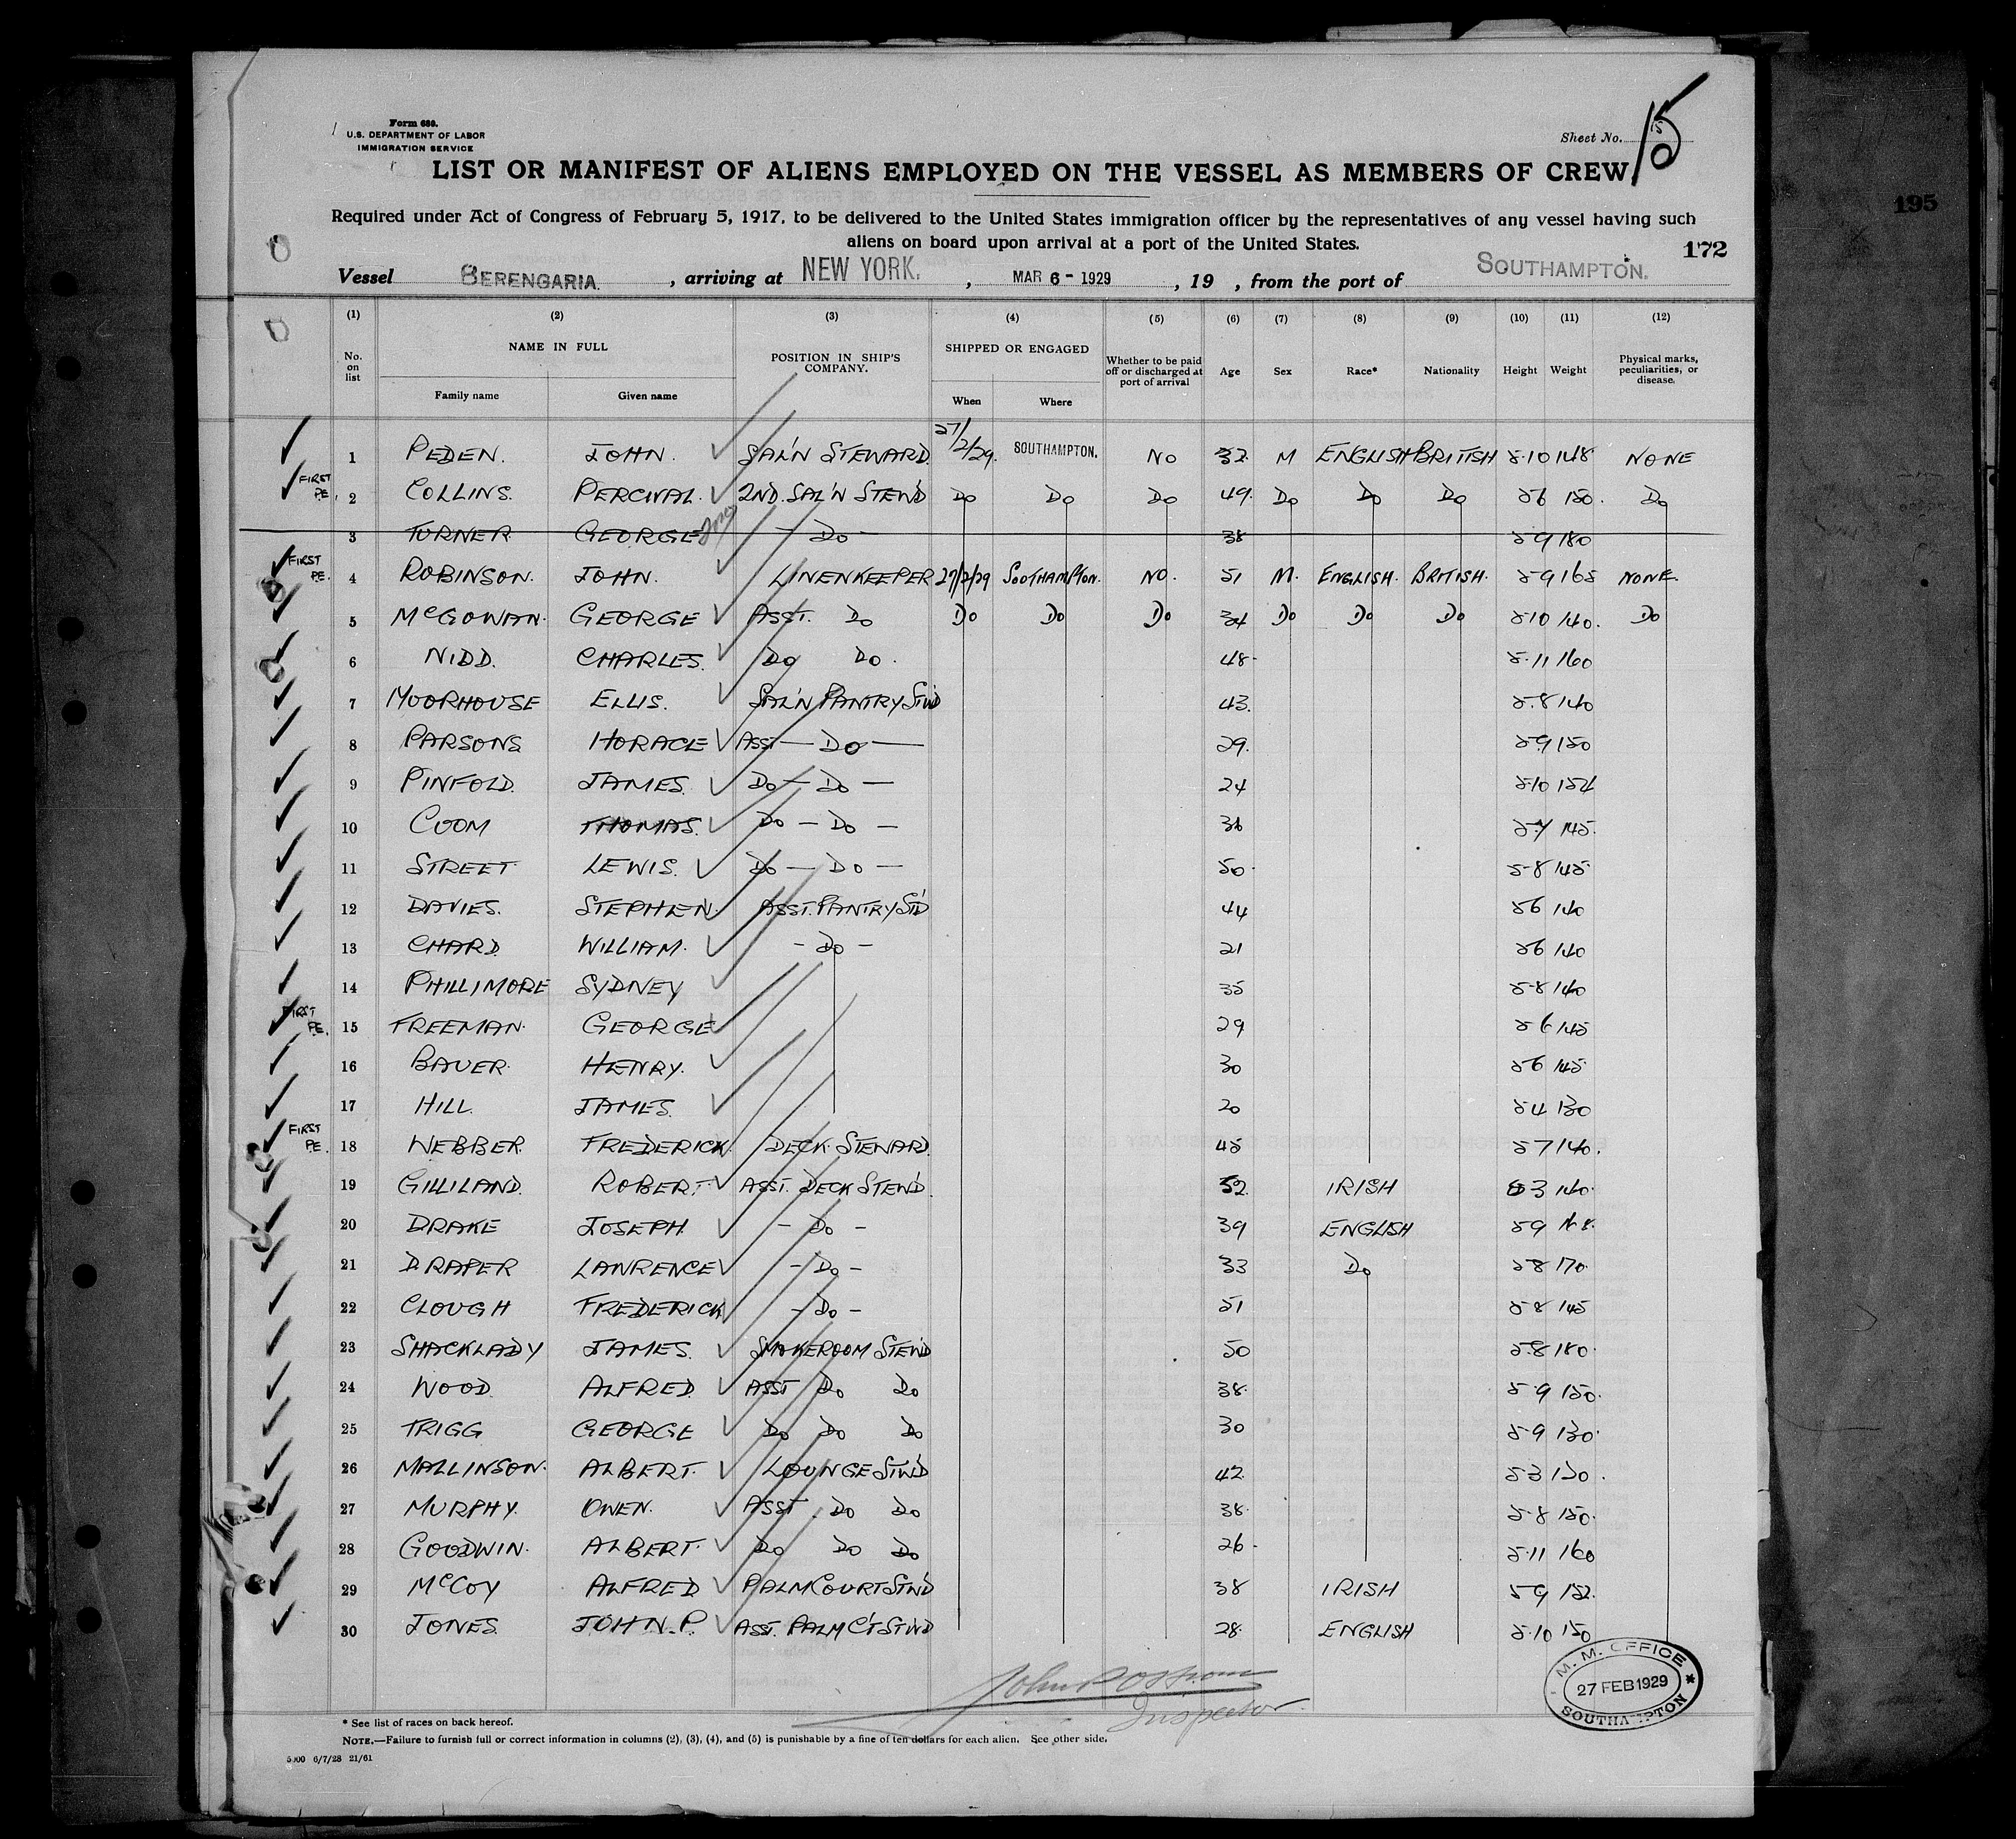 Form 689.
U.S. DEPARTMENT OF LABOR
IMMIGRATION SERVICE
Sheet No. 15
15
LIST OR MANIFEST OF ALIENS EMPLOYED ON THE VESSEL AS MEMBERS OF CREW
195
Required under Act of Congress of February 5, 1917, to be delivered to the United States immigration officer by the representatives of any vessel having such
aliens on board upon arrival at a port of the United States.
172
Vessel BERENGARIA. , arriving at NEW YORK. , MAR 6 - 1929 , 19 , from the port of SOUTHAMPTON.
(1) (2) (3) (4) (5) (6) (7) (8) (9) (10) (11) (12)
No. on list NAME IN FULL POSITION IN SHIP'S COMPANY. SHIPPED OR ENGAGED Whether to be paid off or discharged at port of arrival Age Sex Race* Nationality Height Weight Physical marks, peculiarities, or disease.
Family name Given name When Where
1 PEDEN. JOHN. SAL'N STEWARD. 27/2/29. SOUTHAMPTON. NO 32. M ENGLISH BRITISH 5.10 148 NONE
FIRST PE. 2 COLLINS. PERCIVAL. 2ND. SAL'N STEW'D Do Do Do 49. Do Do Do 5 6 150. Do
3 TURNER. GEORGE - Do - 38 5 9 180
FIRST PE. 4 ROBINSON. JOHN. LINENKEEPER 27/2/29 SOUTHAMPTON. NO. 51 M. ENGLISH. BRITISH. 5 9 165 NONE.
5 McGOWAN. GEORGE ASST. Do Do Do Do 34 Do Do Do 5 10 140. Do
6 NIDD. CHARLES. Do Do. 48. 5.11 160
7 MOORHOUSE ELLIS. SAL'N PANTRY ST'W'D 43. 5.8 140
8 PARSONS HORACE ASST — Do — 29. 5 9 150
9 PINFOLD. JAMES. Do — Do — 24 5.10 154
10 COOM THOMAS. Do — Do — 36 5.7 145.
11 STREET LEWIS. Do — Do — 50. 5-8 145
12 DAVIES. STEPHEN. ASST. PANTRY ST'D 44 5 6 140
13 CHARD. WILLIAM. - Do - 21 5 6 140
14 PHILLIMORE SYDNEY 35 5-8 140
FIRST PE. 15 FREEMAN. GEORGE 29 5 6 145
16 BAUER. HENRY. 30 5 6 145
17 HILL. JAMES. 20 5 4 130
FIRST PE. 18 WEBBER. FREDERICK. DECK STEWARD. 45 5 7 140.
19 GILLILAND. ROBERT. ASST. DECK STEW'D. 52. IRISH 5 3 140.
20 DRAKE JOSEPH. - Do - 39 ENGLISH 5 9 168.
21 DRAPER LAWRENCE - Do - 33 Do 5 8 170.
22 CLOUGH FREDERICK - Do - 51 5-8 145
23 SHACKLADY JAMES. SMOKEROOM STEW'D 50 5.8 180.
24 WOOD. ALFRED. ASST Do Do 38. 5-9 150.
25 TRIGG GEORGE Do Do Do 30 5-9 130.
26 MALLINSON. ALBERT. LOUNGE STW'D 42. 5-3 130.
27 MURPHY. OWEN. ASST. Do Do 38. 5-8 150.
28 GOODWIN. ALBERT. Do Do Do 26. 5.11 160
29 McCOY ALFRED PALM COURT STW'D 38 IRISH 5 9 152.
30 JONES. JOHN. P. ASST. PALM C'T STW'D 28. ENGLISH 5.10 150
Inspector
M. M. OFFICE
27 FEB 1929
SOUTHAMPTON
* See list of races on back hereof.
NOTE.—Failure to furnish full or correct information in columns (2), (3), (4), and (5) is punishable by a fine of ten dollars for each alien. See other side.
5000 6/7/28 21/61